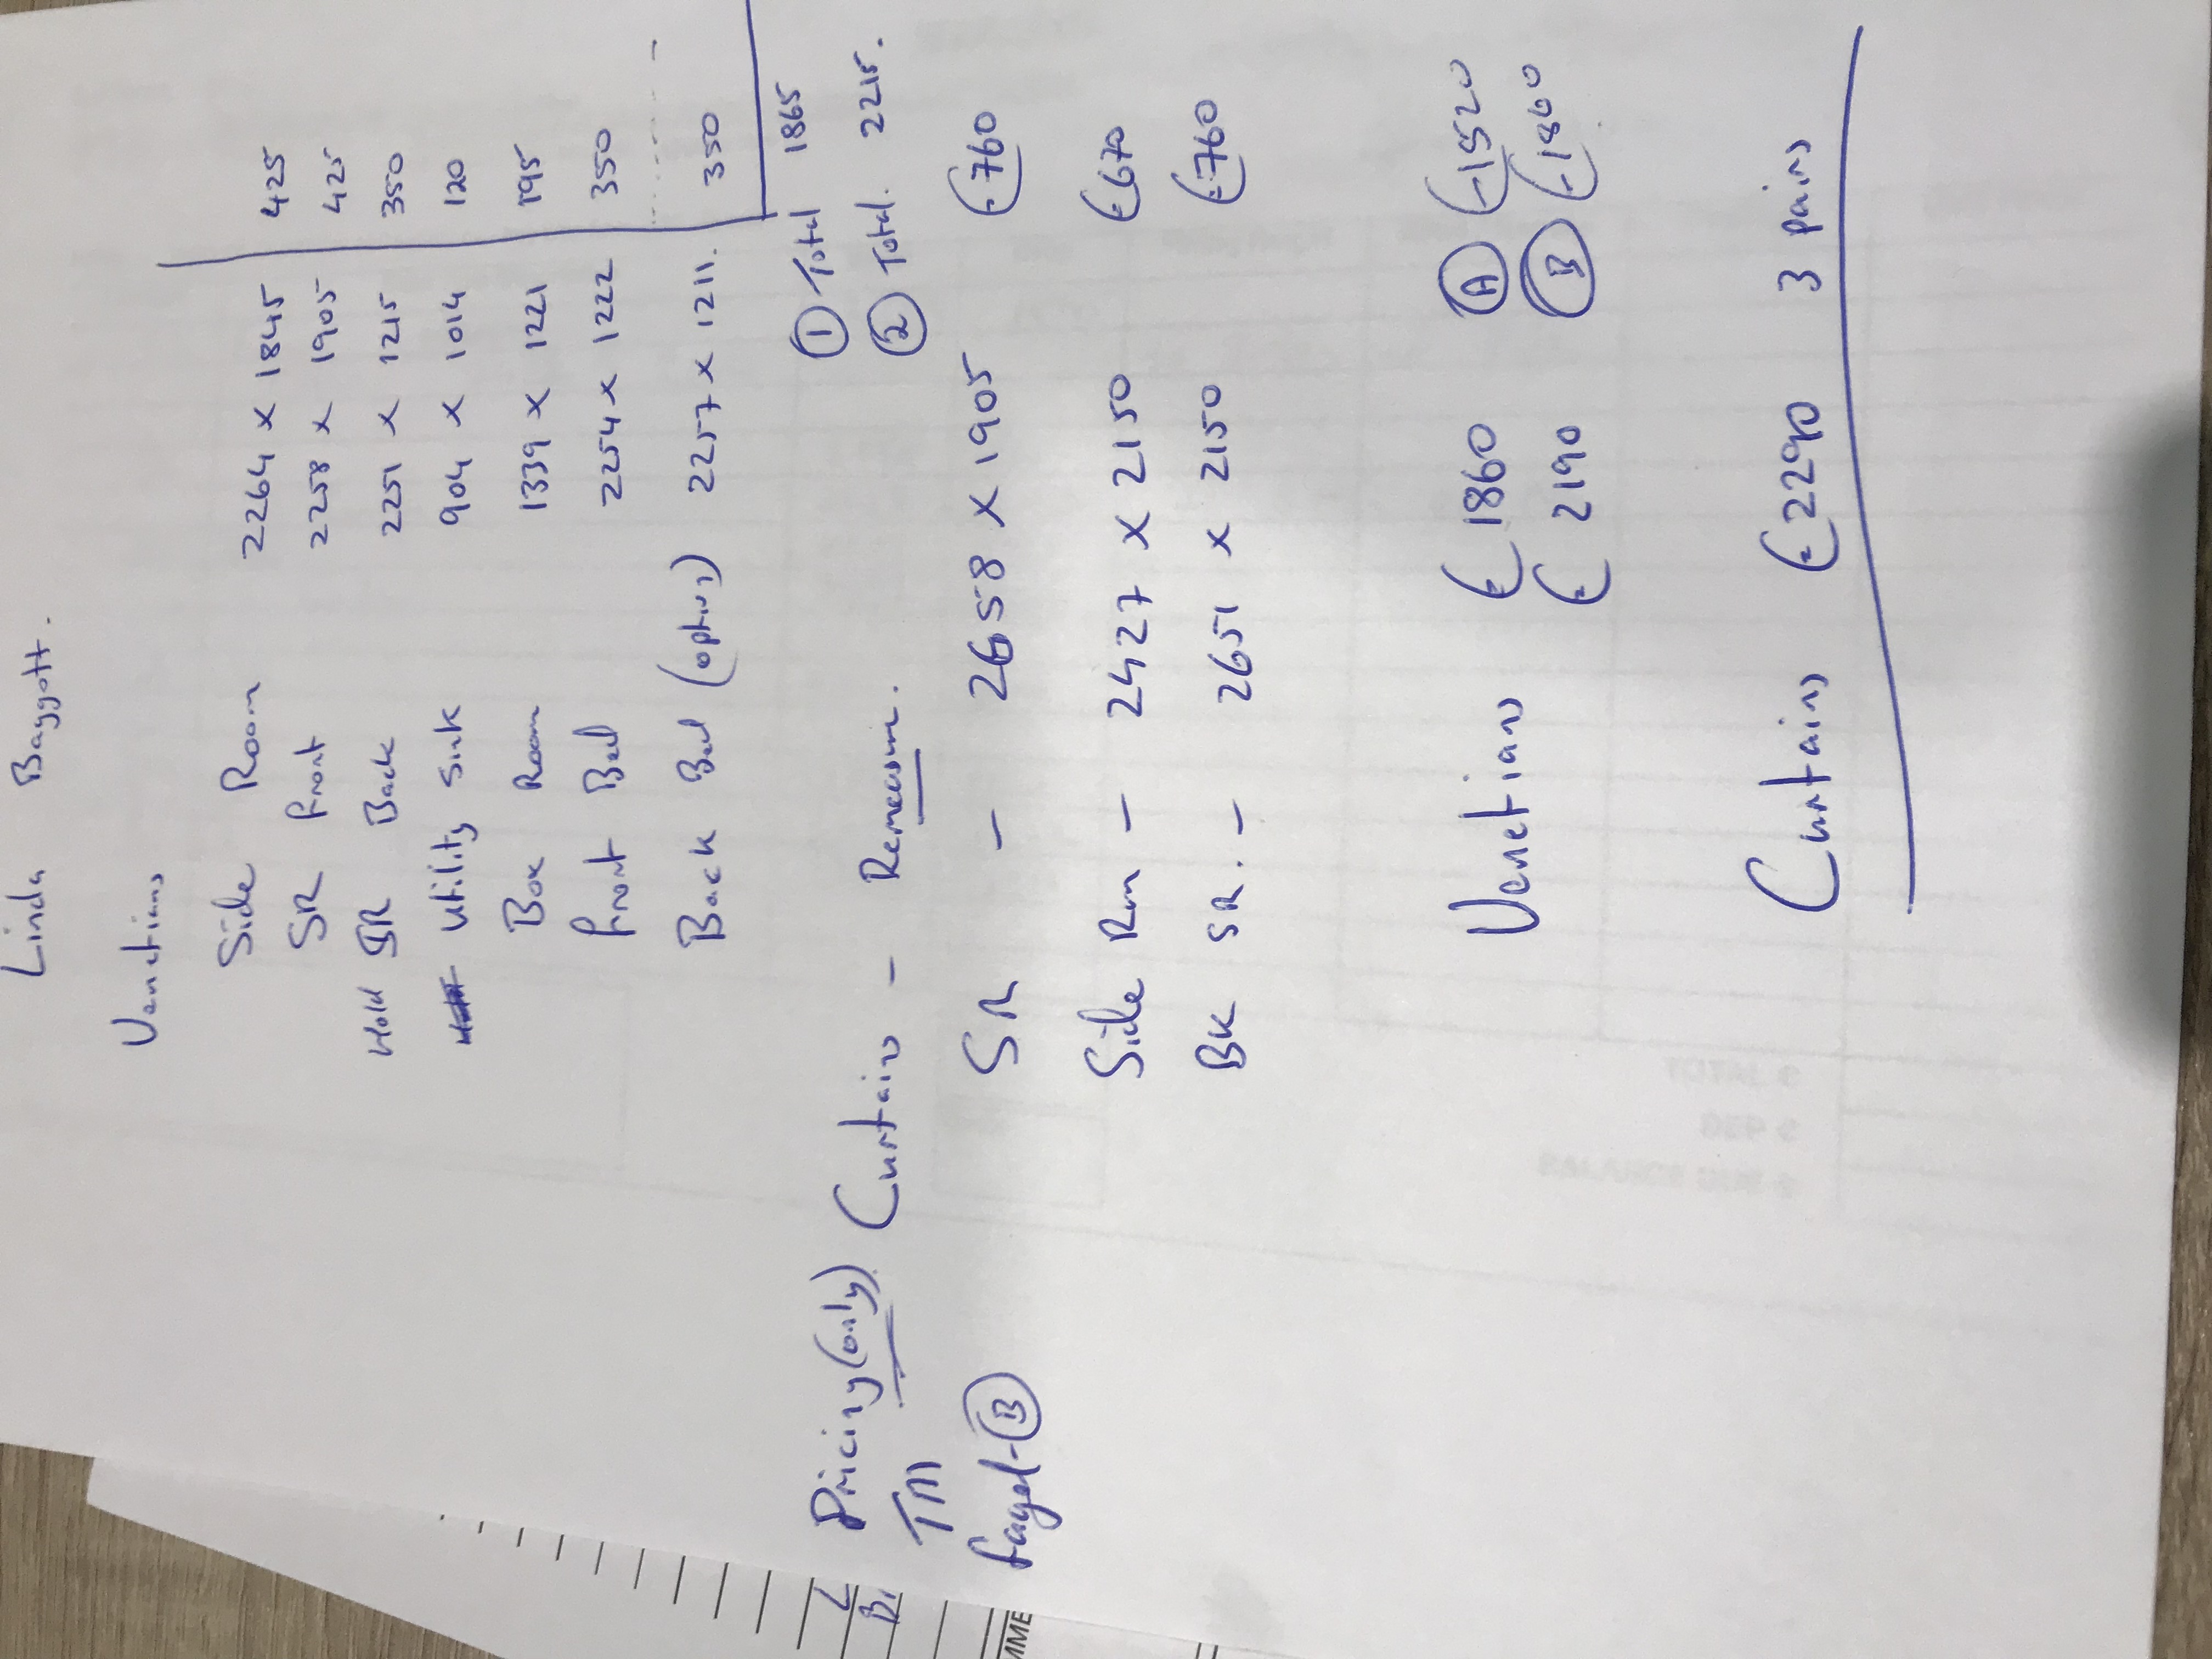 Linda Baggott.
Venetians
Side Room 2264 x 1845 425
SR Front 2258 x 1905 425
Hold SR Back 2251 x 1215 350
Utility Sink 904 x 1014 120
Box Room 1339 x 1221 195
Front Bed 2254 x 1222 350
Back Bed (option) 2257 x 1211. 350
① Total 1865
② Total. 2215.
Pricing (only) Curtains - Remeasure.
TM
Fagel - Ⓑ
SR - 2658 x 1905 €760
Side Rm - 2427 x 2150 €670
BK SR. - 2651 x 2150 €760
Venetians € 1860 Ⓐ €1520
€ 2190 Ⓑ €1860
Curtains €2290 3 pairs
TOTAL €
BALANCE DUE €